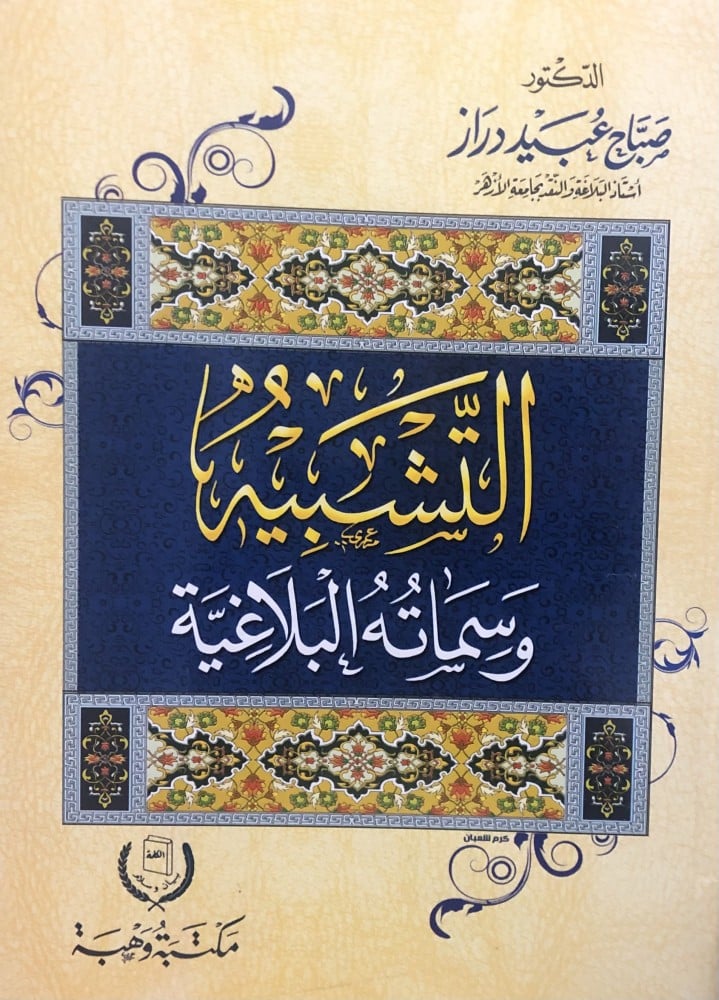 الدكتور
صَبَّاح عُبَيْد دراز
أستاذ البَلَاغَة والنَّقد بجَامعَة الأزْهَر
التَّشْبِيْهُ
عمري
وَسِمَاتُهُ البَلَاغِيَّة
كرم شعبان
الكلمة
بيان وسلام
مَكتَبَةُ وَهْبَة